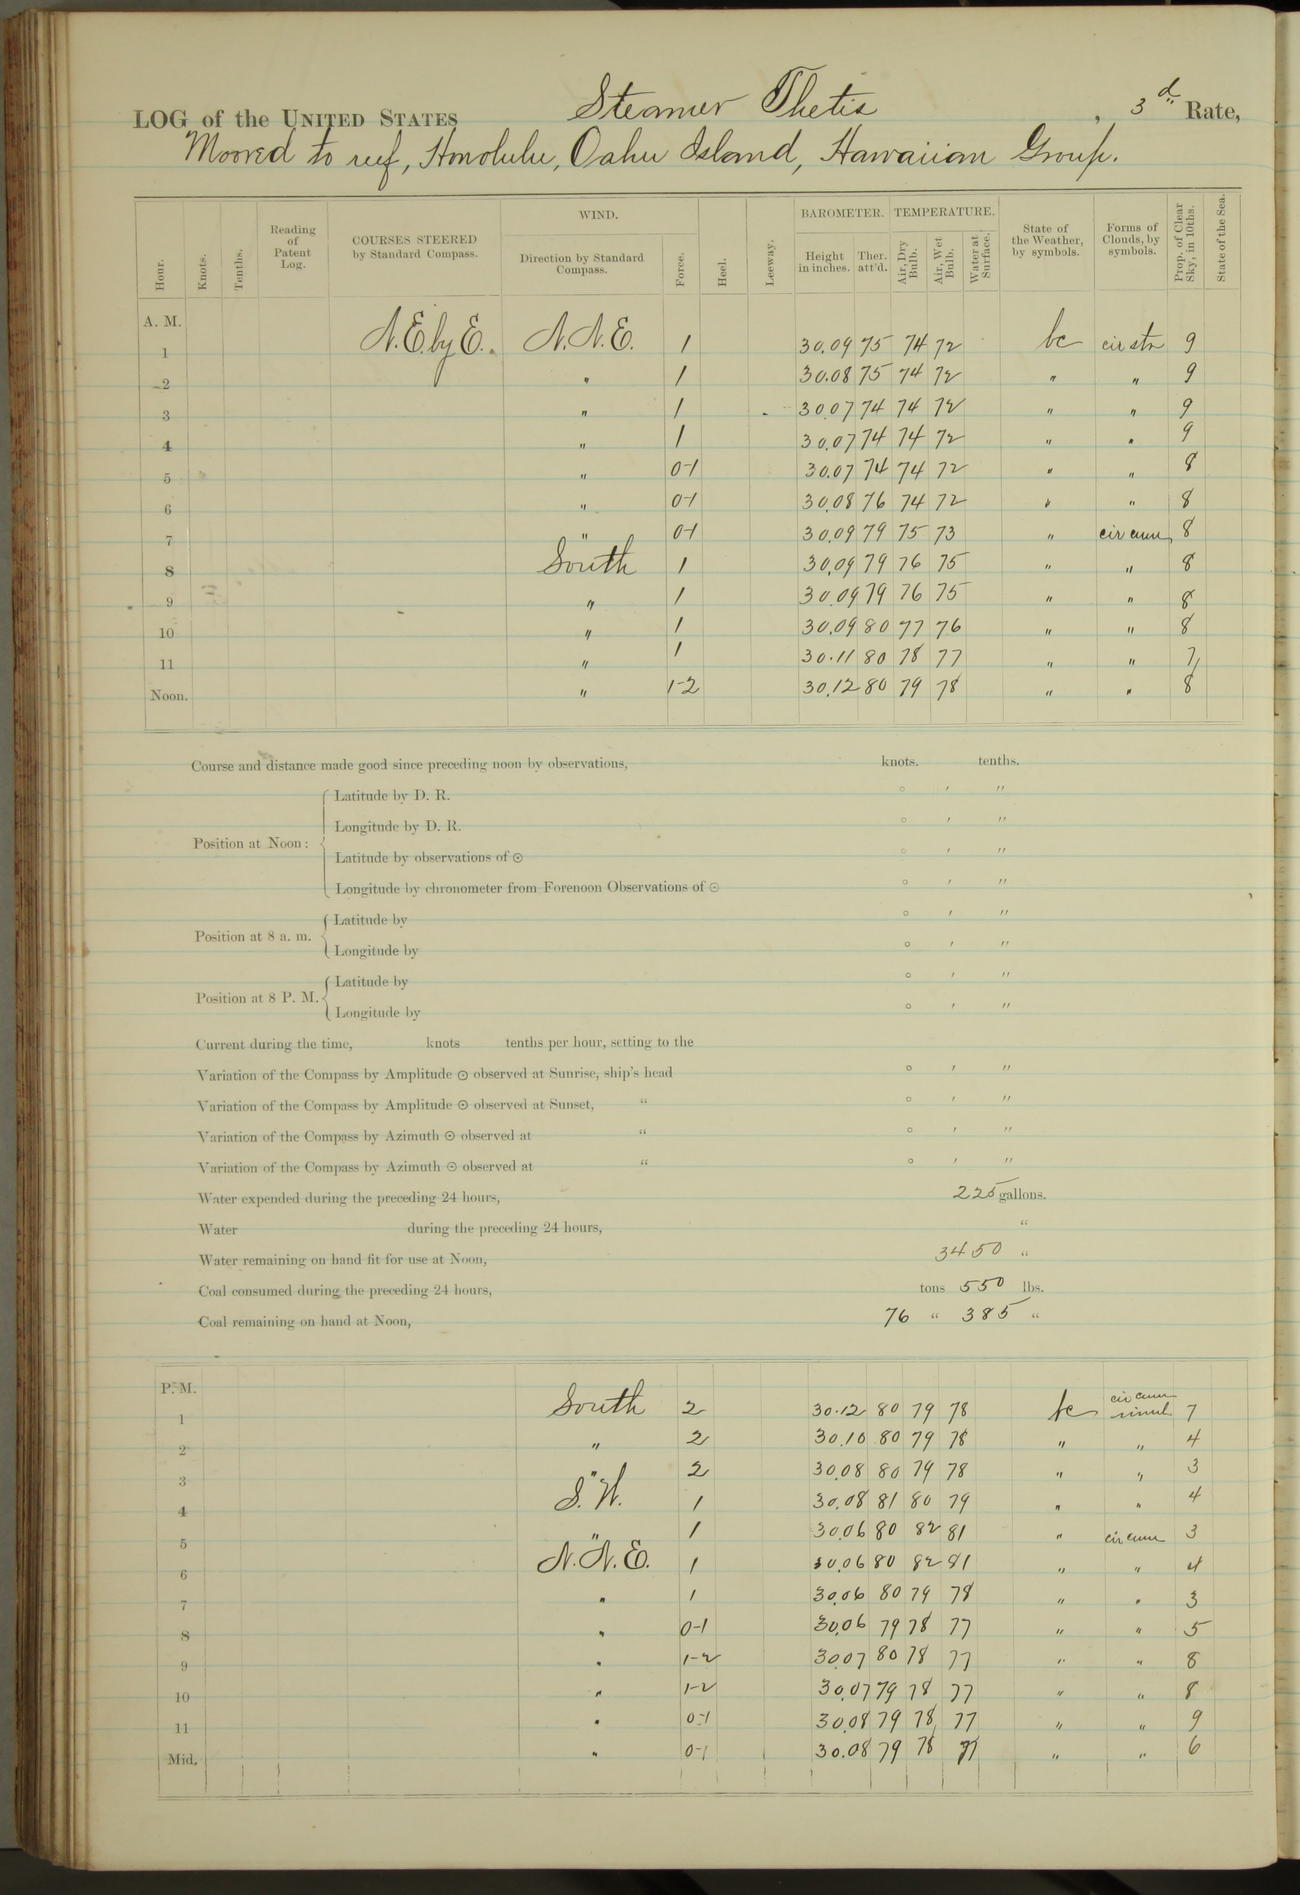 LOG of the UNITED STATES Steamer Thetis, 3d Rate,
Moored to reef, Honolulu, Oahu Island, Hawaiian Group.
WIND. BAROMETER. TEMPERATURE.
Hour. Knots. Tenths. Reading of Patent Log. COURSES STEERED by Standard Compass. Direction by Standard Compass. Force. Heel. Leeway. Height in inches. Ther. att'd. Air, Dry Bulb. Air, Wet Bulb. Water at Surface. State of the Weather, by symbols. Forms of Clouds, by symbols. Prop. of Clear Sky, in 10ths. State of the Sea.
A. M.
1 N.E. by E. N.N.E. 1 30.09 75 74 72 bc cir str 9
2 " 1 30.08 75 74 72 " " 9
3 " 1 30.07 74 74 72 " " 9
4 " 1 30.07 74 74 72 " " 9
5 " 0-1 30.07 74 74 72 " " 8
6 " 0-1 30.08 76 74 72 " " 8
7 " 0-1 30.09 79 75 73 " cir cum 8
8 South 1 30.09 79 76 75 " " 8
9 " 1 30.09 79 76 75 " " 8
10 " 1 30.09 80 77 76 " " 8
11 " 1 30.11 80 78 77 " " 7
Noon. " 1-2 30.12 80 79 78 " " 8
Course and distance made good since preceding noon by observations, knots. tenths.
Position at Noon: Latitude by D. R. ° ′ ″
Longitude by D. R. ° ′ ″
Latitude by observations of ⊙ ° ′ ″
Longitude by chronometer from Forenoon Observations of ⊙ ° ′ ″
Position at 8 a. m. Latitude by ° ′ ″
Longitude by ° ′ ″
Position at 8 P. M. Latitude by ° ′ ″
Longitude by ° ′ ″
Current during the time, knots tenths per hour, setting to the
Variation of the Compass by Amplitude ⊙ observed at Sunrise, ship's head ° ′ ″
Variation of the Compass by Amplitude ⊙ observed at Sunset, " ° ′ ″
Variation of the Compass by Azimuth ⊙ observed at " ° ′ ″
Variation of the Compass by Azimuth ⊙ observed at " ° ′ ″
Water expended during the preceding 24 hours, 225 gallons.
Water during the preceding 24 hours, "
Water remaining on hand fit for use at Noon, 3450 "
Coal consumed during the preceding 24 hours, tons 550 lbs.
Coal remaining on hand at Noon, 76 " 385 "
P. M.
1 South 2 30.12 80 79 78 bc cir cum 7
2 " 2 30.10 80 79 78 " " 4
3 " 2 30.08 80 79 78 " " 3
4 S.W. 1 30.08 81 80 79 " " 4
5 " 1 30.06 80 82 81 " cir cum 3
6 N.N.E. 1 30.06 80 82 81 " " 4
7 " 1 30.06 80 79 78 " " 3
8 " 0-1 30.06 79 78 77 " " 5
9 " 1-2 30.07 80 78 77 " " 8
10 " 1-2 30.07 79 78 77 " " 8
11 " 0-1 30.08 79 78 77 " " 9
Mid. " 0-1 30.08 79 78 77 " " 6